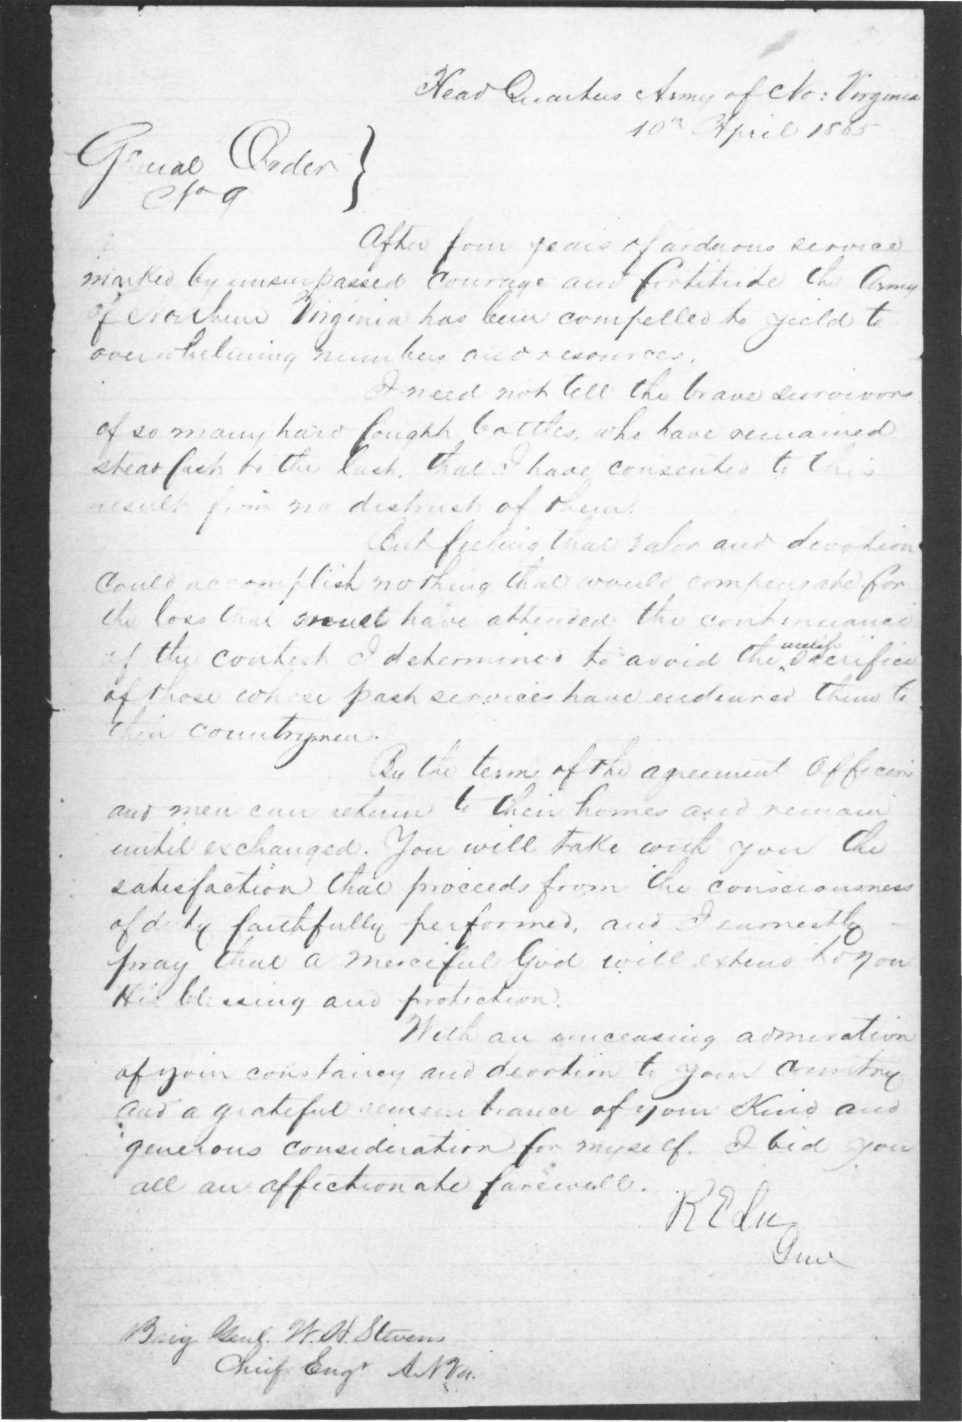 Head Quarters Army of No: Virginia
10th April 1865
General Order }
No 9
After four years of arduous service
marked by unsurpassed courage and fortitude the Army
of Northern Virginia has been compelled to yield to
overwhelming numbers and resources.
I need not tell the brave survivors
of so many hard fought battles, who have remained
steadfast to the last, that I have consented to this
result from no distrust of them.
But feeling that valor and devotion
could accomplish nothing that would compensate for
the loss that must have attended the continuance
of the contest I determined to avoid the useless sacrifice
of those whose past services have endeared them to
their countrymen.
By the terms of the agreement Officers
and men can return to their homes and remain
until exchanged. You will take with you the
satisfaction that proceeds from the consciousness
of duty faithfully performed, and I earnestly
pray that a merciful God will extend to you
His blessing and protection.
With an unceasing admiration
of your constancy and devotion to your Country
and a grateful remembrance of your Kind and
generous consideration for myself. I bid you
all an affectionate farewell.
R E Lee
Genl
Brig Genl. W. H. Stevens
Chief Engr A. N. Va.